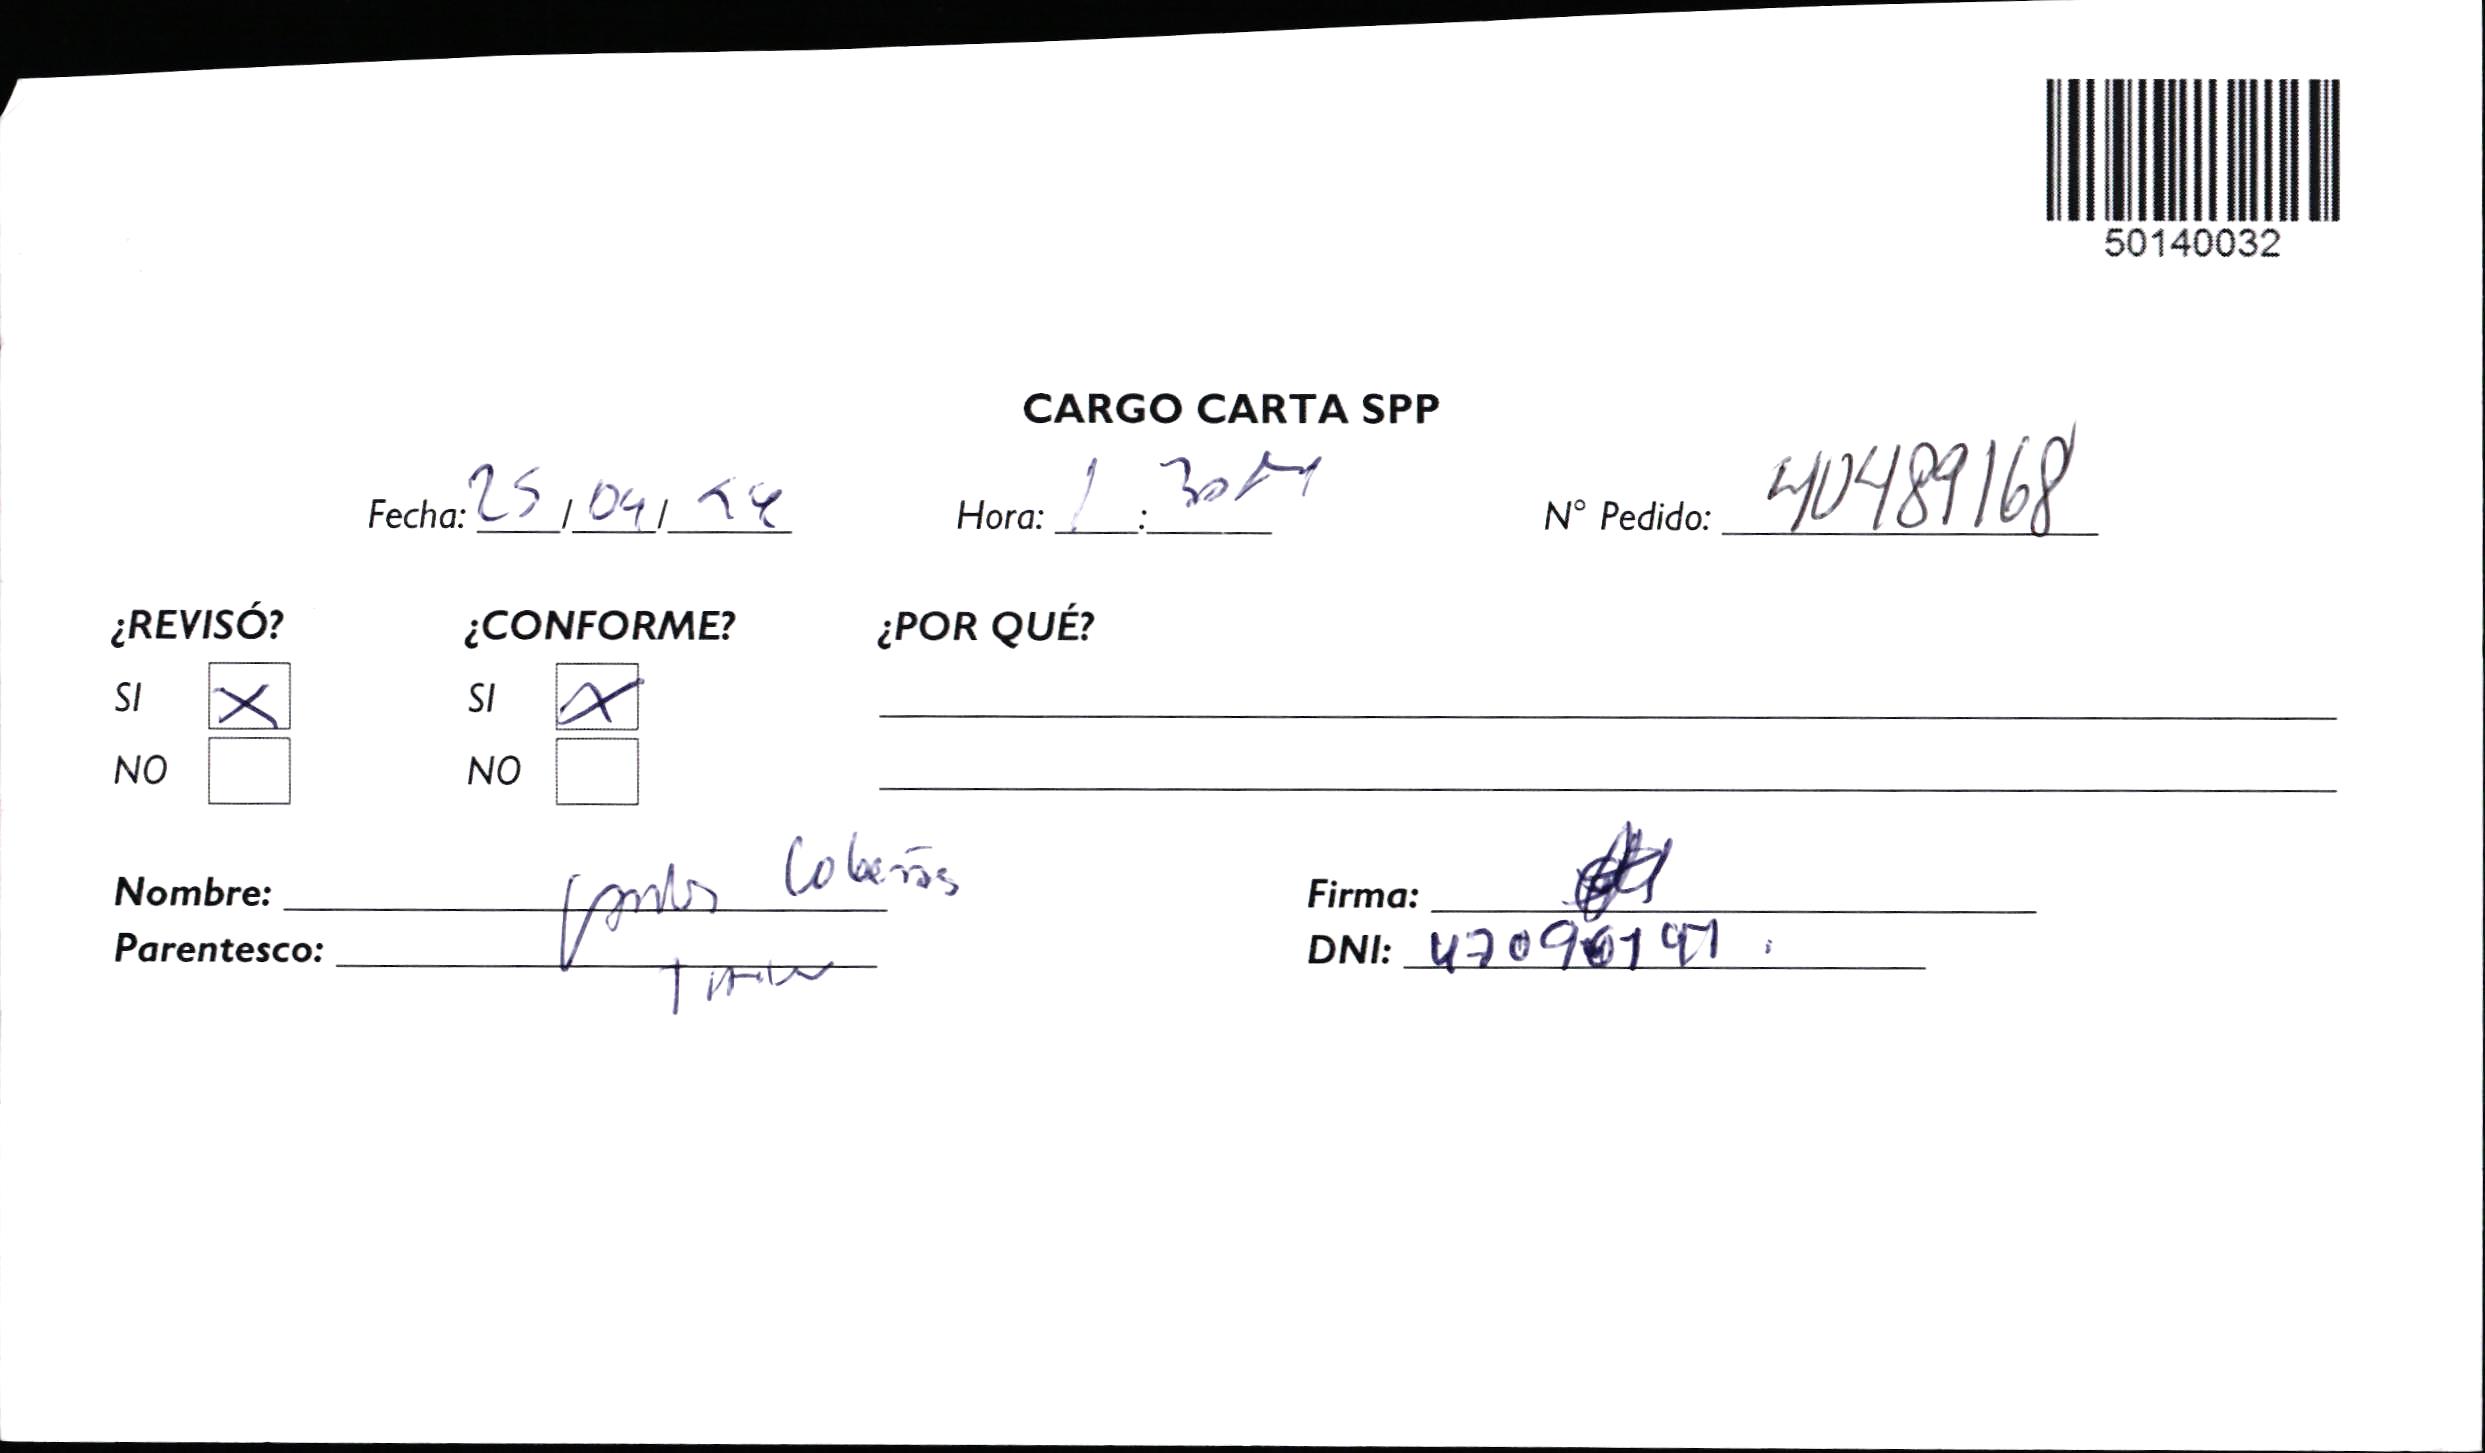 50140032
CARGO CARTA SPP
Fecha: 25/04/24 Hora: 1:30 PM N° Pedido: 40489168
¿REVISÓ? ¿CONFORME? ¿POR QUÉ?
SI X SI X
NO NO
Nombre: Firma:
Parentesco: DNI: